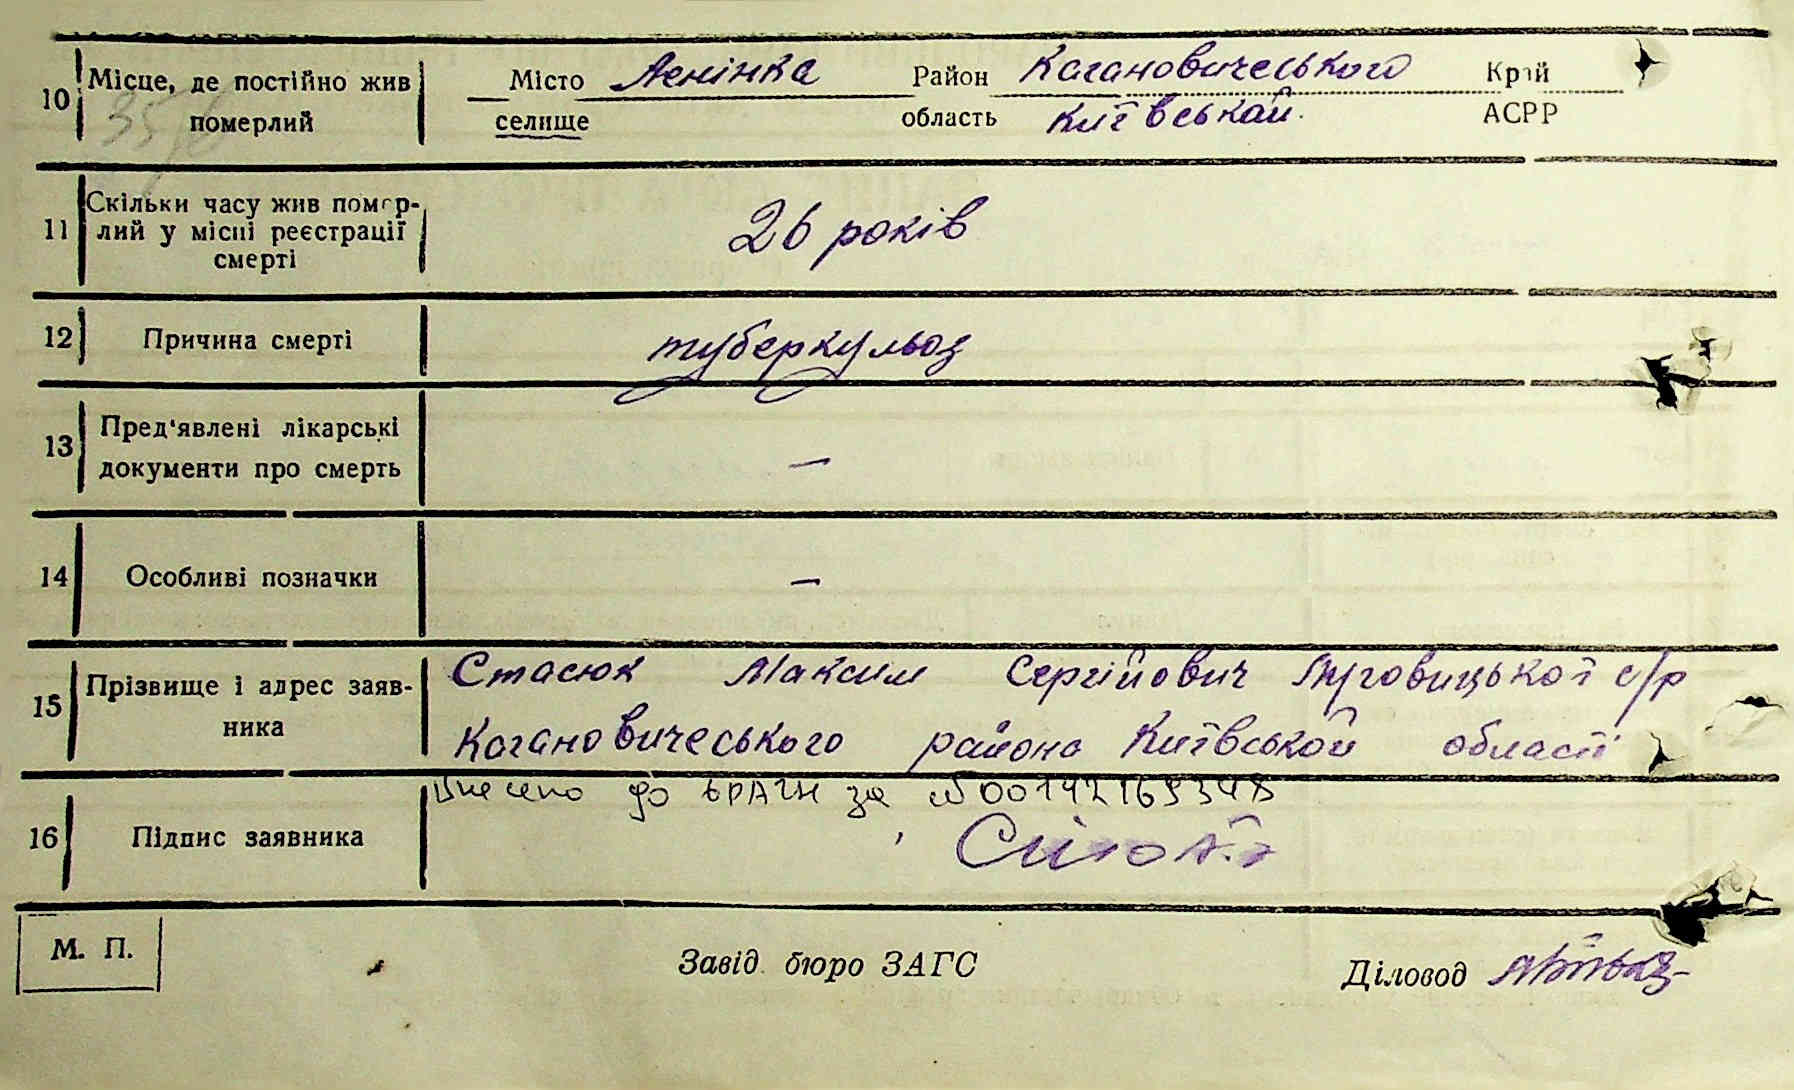 10 Місце, де постійно жив померлий Місто Ленінка Район Кагановичеського Край
селище область Київськай АСРР
11 Скільки часу жив помер-
лий у місці реєстрації
смерті 26 років
12 Причина смерті туберкульоз
13 Пред'явлені лікарські
документи про смерть —
14 Особливі позначки —
15 Прізвище і адрес заяв-
ника Стасюк Максим Сергійович Луговицької с/р
Кагановичеського района Київськой області
Внесено до ДРАЦС за №00142169348
16 Підпис заявника
М. П. Завід. бюро ЗАГС Діловод